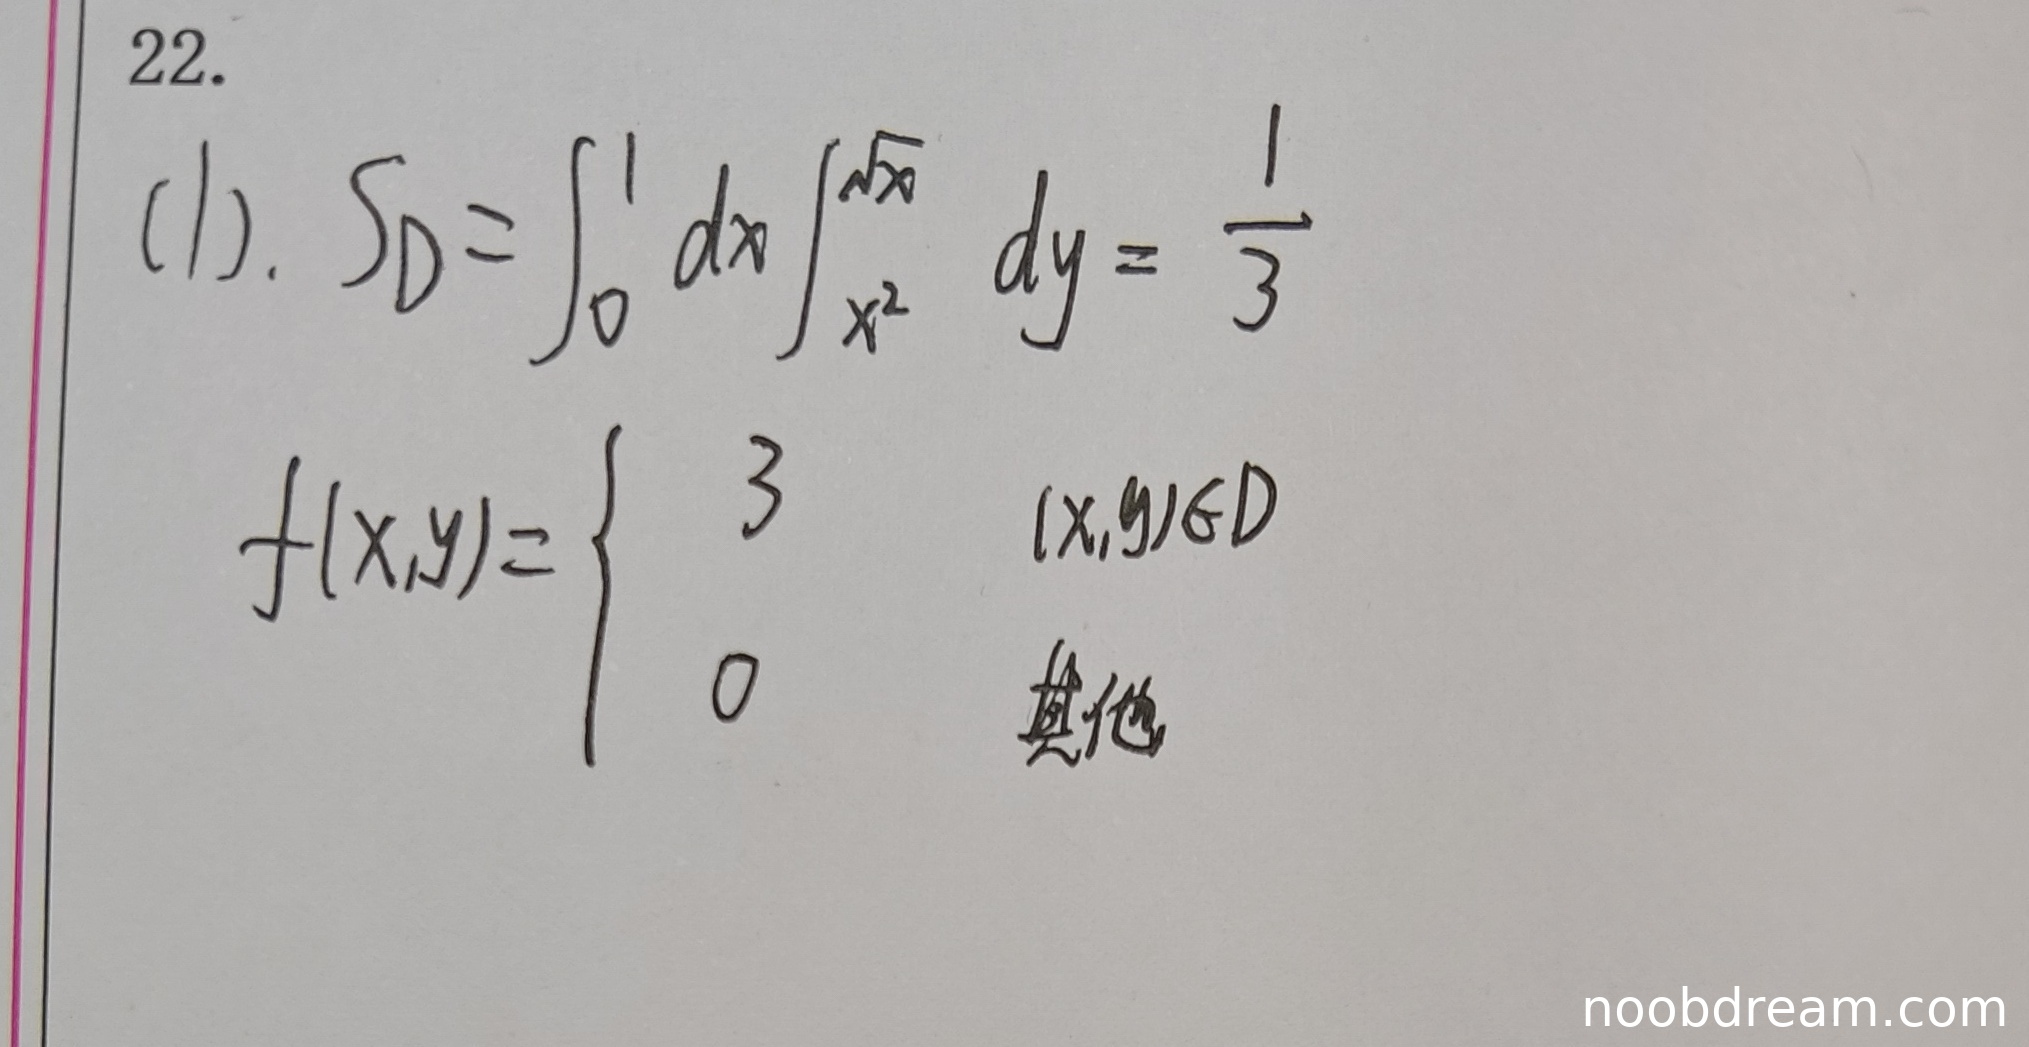 22.
(1). S_D = ∫_0^1 dx ∫_{x^2}^{√x} dy = 1/3
f(x,y) = { 3 (x,y)∈D
0 其他
noobdream.com